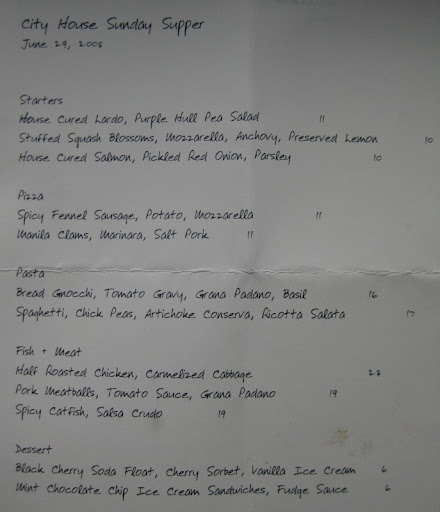 City House Sunday Supper
June 29, 2008
Starters
House Cured Lardo, Purple Hull Pea Salad 11
Stuffed Squash Blossoms, Mozzarella, Anchovy, Preserved Lemon 10
House Cured Salmon, Pickled Red Onion, Parsley 10
Pizza
Spicy Fennel Sausage, Potato, Mozzarella 11
Manila Clams, Marinara, Salt Pork 11
Pasta
Bread Gnocchi, Tomato Gravy, Grana Padano, Basil 16
Spaghetti, Chick Peas, Artichoke Conserva, Ricotta Salata 17
Fish + Meat
Half Roasted Chicken, Carmelized Cabbage 23
Pork Meatballs, Tomato Sauce, Grana Padano 19
Spicy Catfish, Salsa Crudo 19
Dessert
Black Cherry Soda Float, Cherry Sorbet, Vanilla Ice Cream 6
Mint Chocolate Chip Ice Cream Sandwiches, Fudge Sauce 6